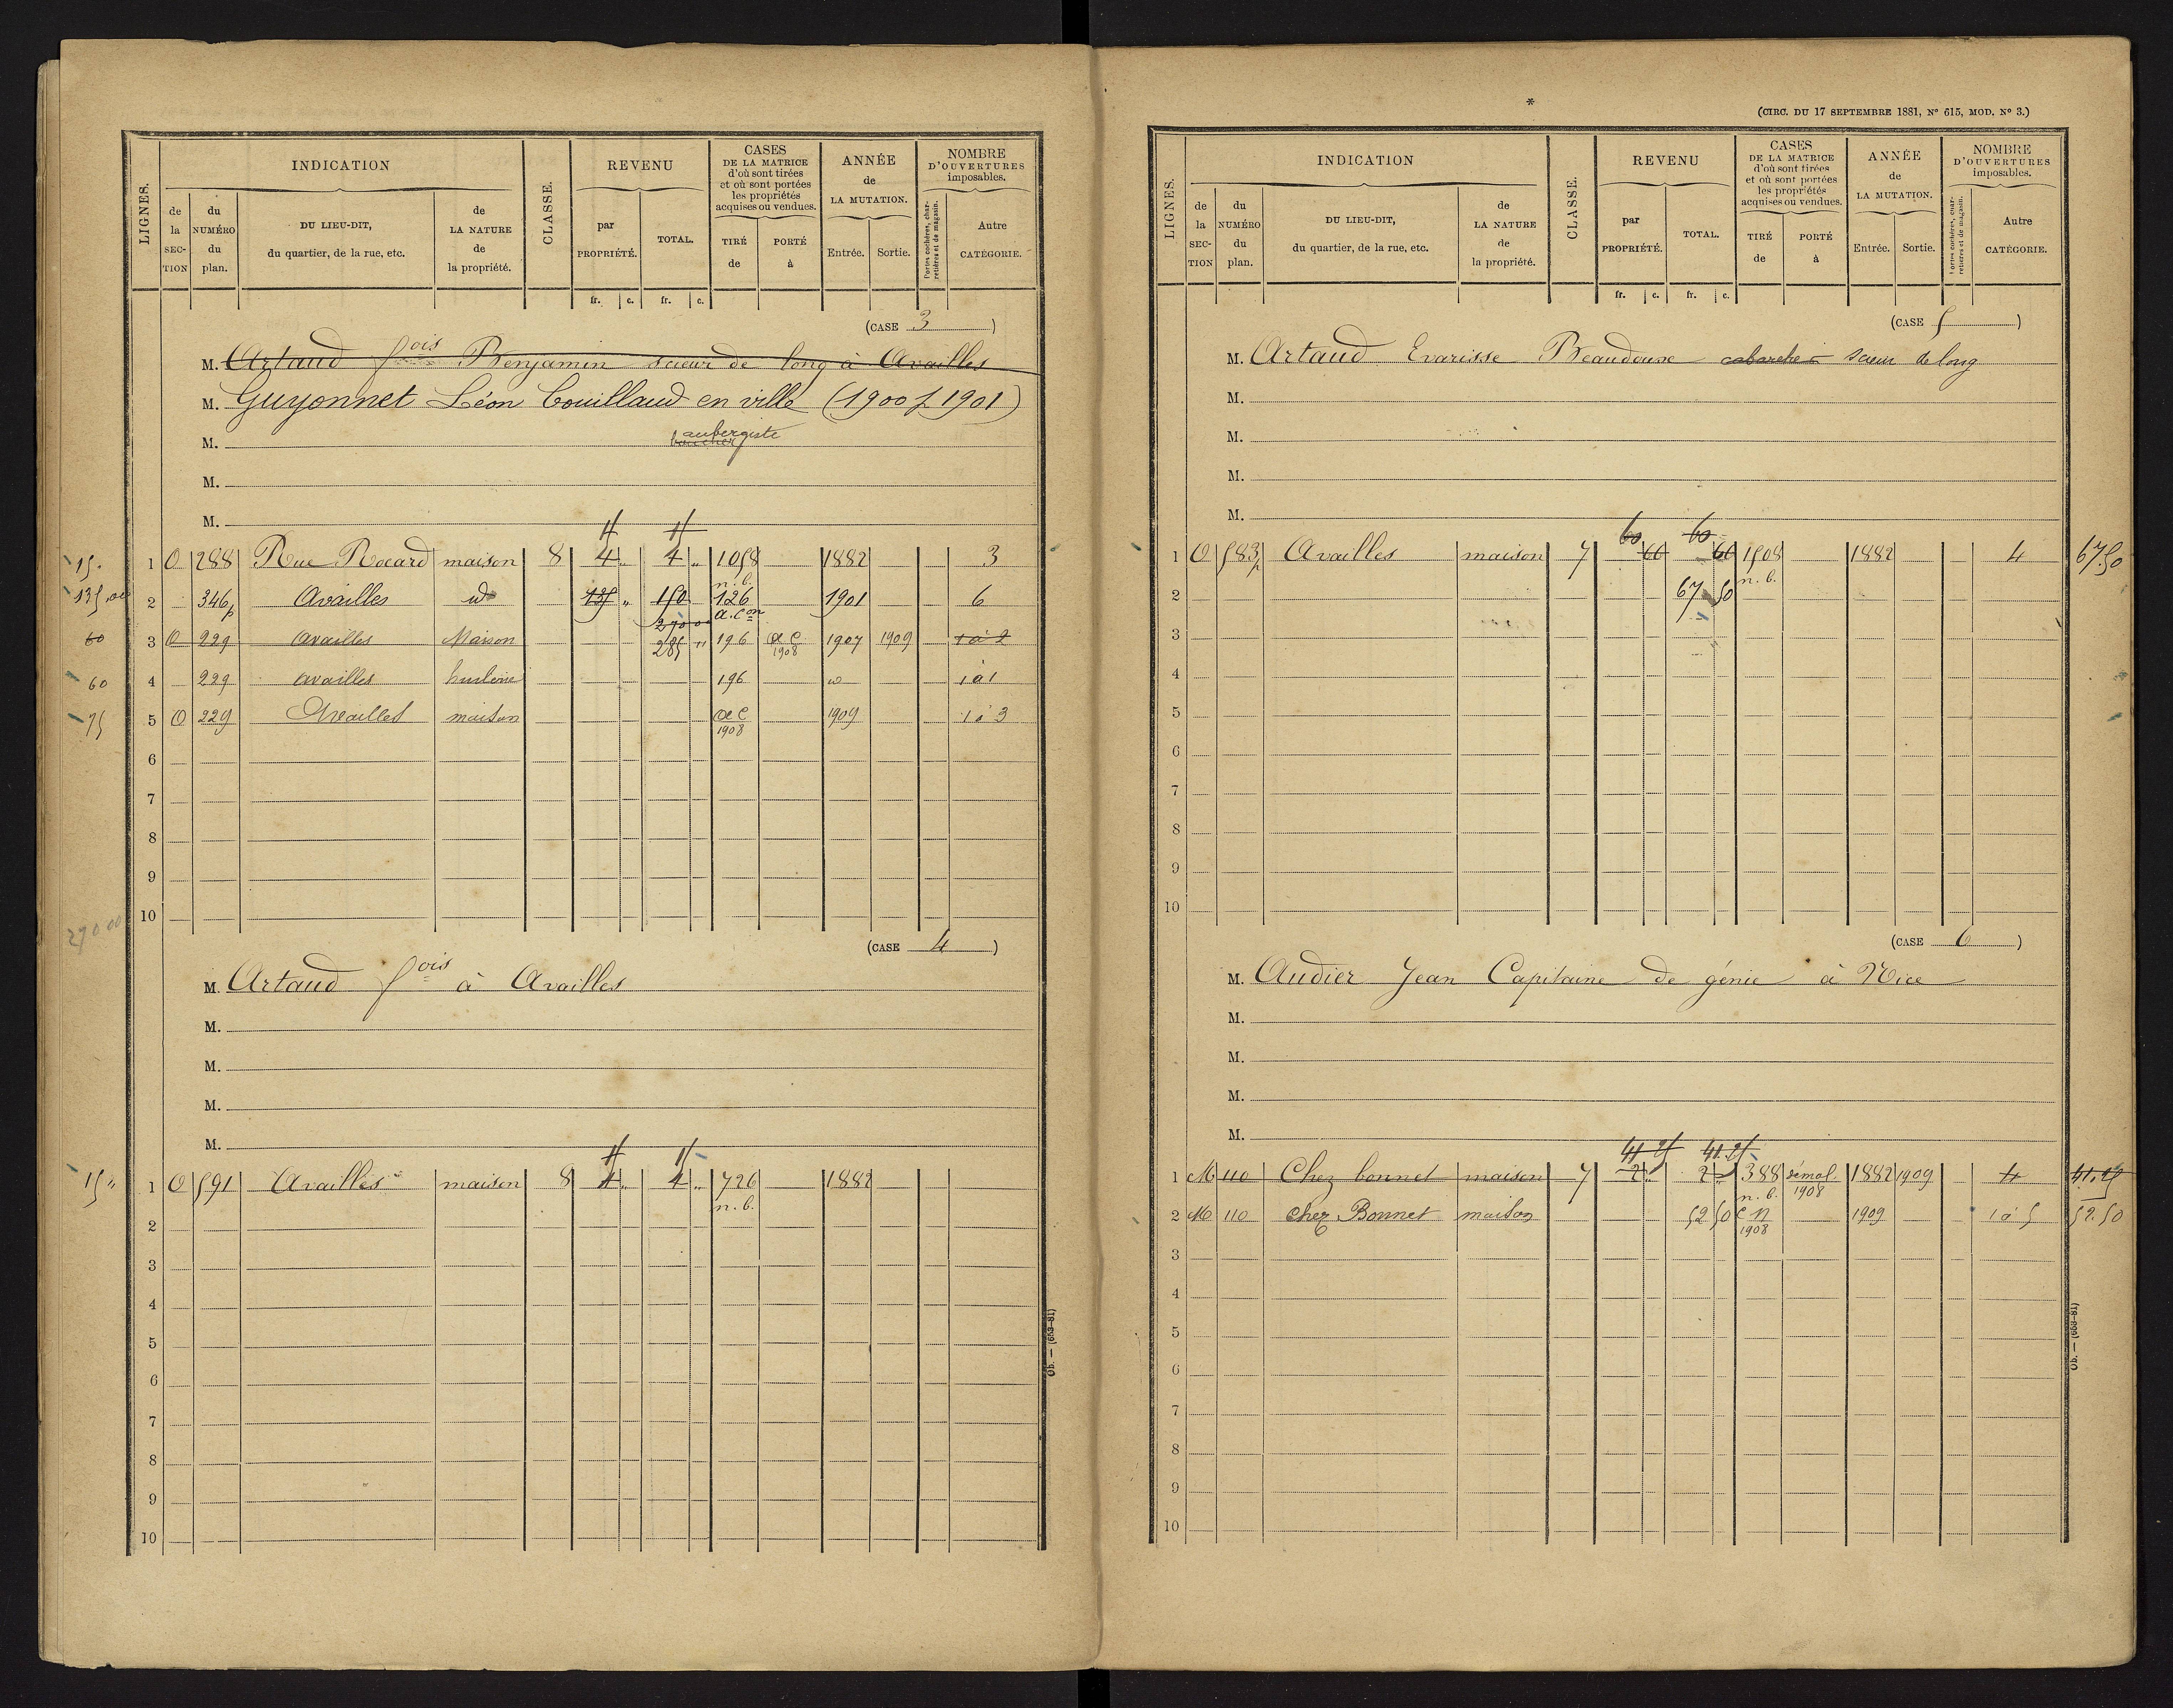 LIGNES.
INDICATION
de la SECTION
du NUMÉRO du plan.
DU LIEU-DIT, du quartier, de la rue, etc.
de LA NATURE de la propriété.
CLASSE.
REVENU
par PROPRIÉTÉ.
TOTAL.
CASES DE LA MATRICE d'où sont tirées et où sont portées les propriétés acquises ou vendues.
TIRÉ de
PORTÉ à
ANNÉE de LA MUTATION.
Entrée.
Sortie.
NOMBRE D'OUVERTURES imposables.
Portes cochères, charretières et de magasin.
Autre CATÉGORIE.
fr. c. fr. c.
(CASE 3)
M. Artaud fois Benjamin scieur de long à Availles
M. Guyonnet Léon Couillaud en ville (1900 f 1901)
M. aubergiste
M.
M.
15 15
15. 1 O 288 Rue Rocard maison 8 4 " 4 " 1058 1882 3
n. b.
135,00 2 346p Availles id 135 " 150 126 1901 6
270 00 a. Con
60 3 O 229 Availles Maison 285 " 196 a c 1908 1907 1909 1 à 2
60 4 229 availles 196 1 à 1
75 5 O 229 Availles maison a c 1908 1909 1 à 3
6
7
8
9
10
270 00
(CASE 4)
M. Artaud fois à Availles
M.
M.
M.
M.
15 15
15 " 1 O 591 Availles maison 8 4 " 4 " 726 1882
n. b.
2
3
4
5
6
7
8
9
10
Ob. — (653-81)
*
(CIRC. DU 17 SEPTEMBRE 1881, N° 615, MOD. N° 3.)
LIGNES.
INDICATION
de la SECTION
du NUMÉRO du plan.
DU LIEU-DIT, du quartier, de la rue, etc.
de LA NATURE de la propriété.
CLASSE.
REVENU
par PROPRIÉTÉ.
TOTAL.
CASES DE LA MATRICE d'où sont tirées et où sont portées les propriétés acquises ou vendues.
TIRÉ de
PORTÉ à
ANNÉE de LA MUTATION.
Entrée.
Sortie.
NOMBRE D'OUVERTURES imposables.
Portes cochères, charretières et de magasin.
Autre CATÉGORIE.
fr. c. fr. c.
(CASE 5)
M. Artaud Evarisse Beaudoux scieur de long
M.
M.
M.
M.
60 60
1 O 583p Availles maison 7 60 60 1508 1882 4 67.50
n. b.
2 67 50
3
4
5
6
7
8
9
10
(CASE 6)
M. Audier Jean Capitaine de génie à Nice
M.
M.
M.
M.
41 25 41.25
1 M 110 Chez bonnet maison 7 2 " 2 " 388 démol. 1908 1882 1909 4 41.25
n. b.
2 M 110 Chez Bonnet maison 52 50 C n 1908 1909 1 à 5 52.50
3
4
5
6
7
8
9
10
Ob. — (653-81)